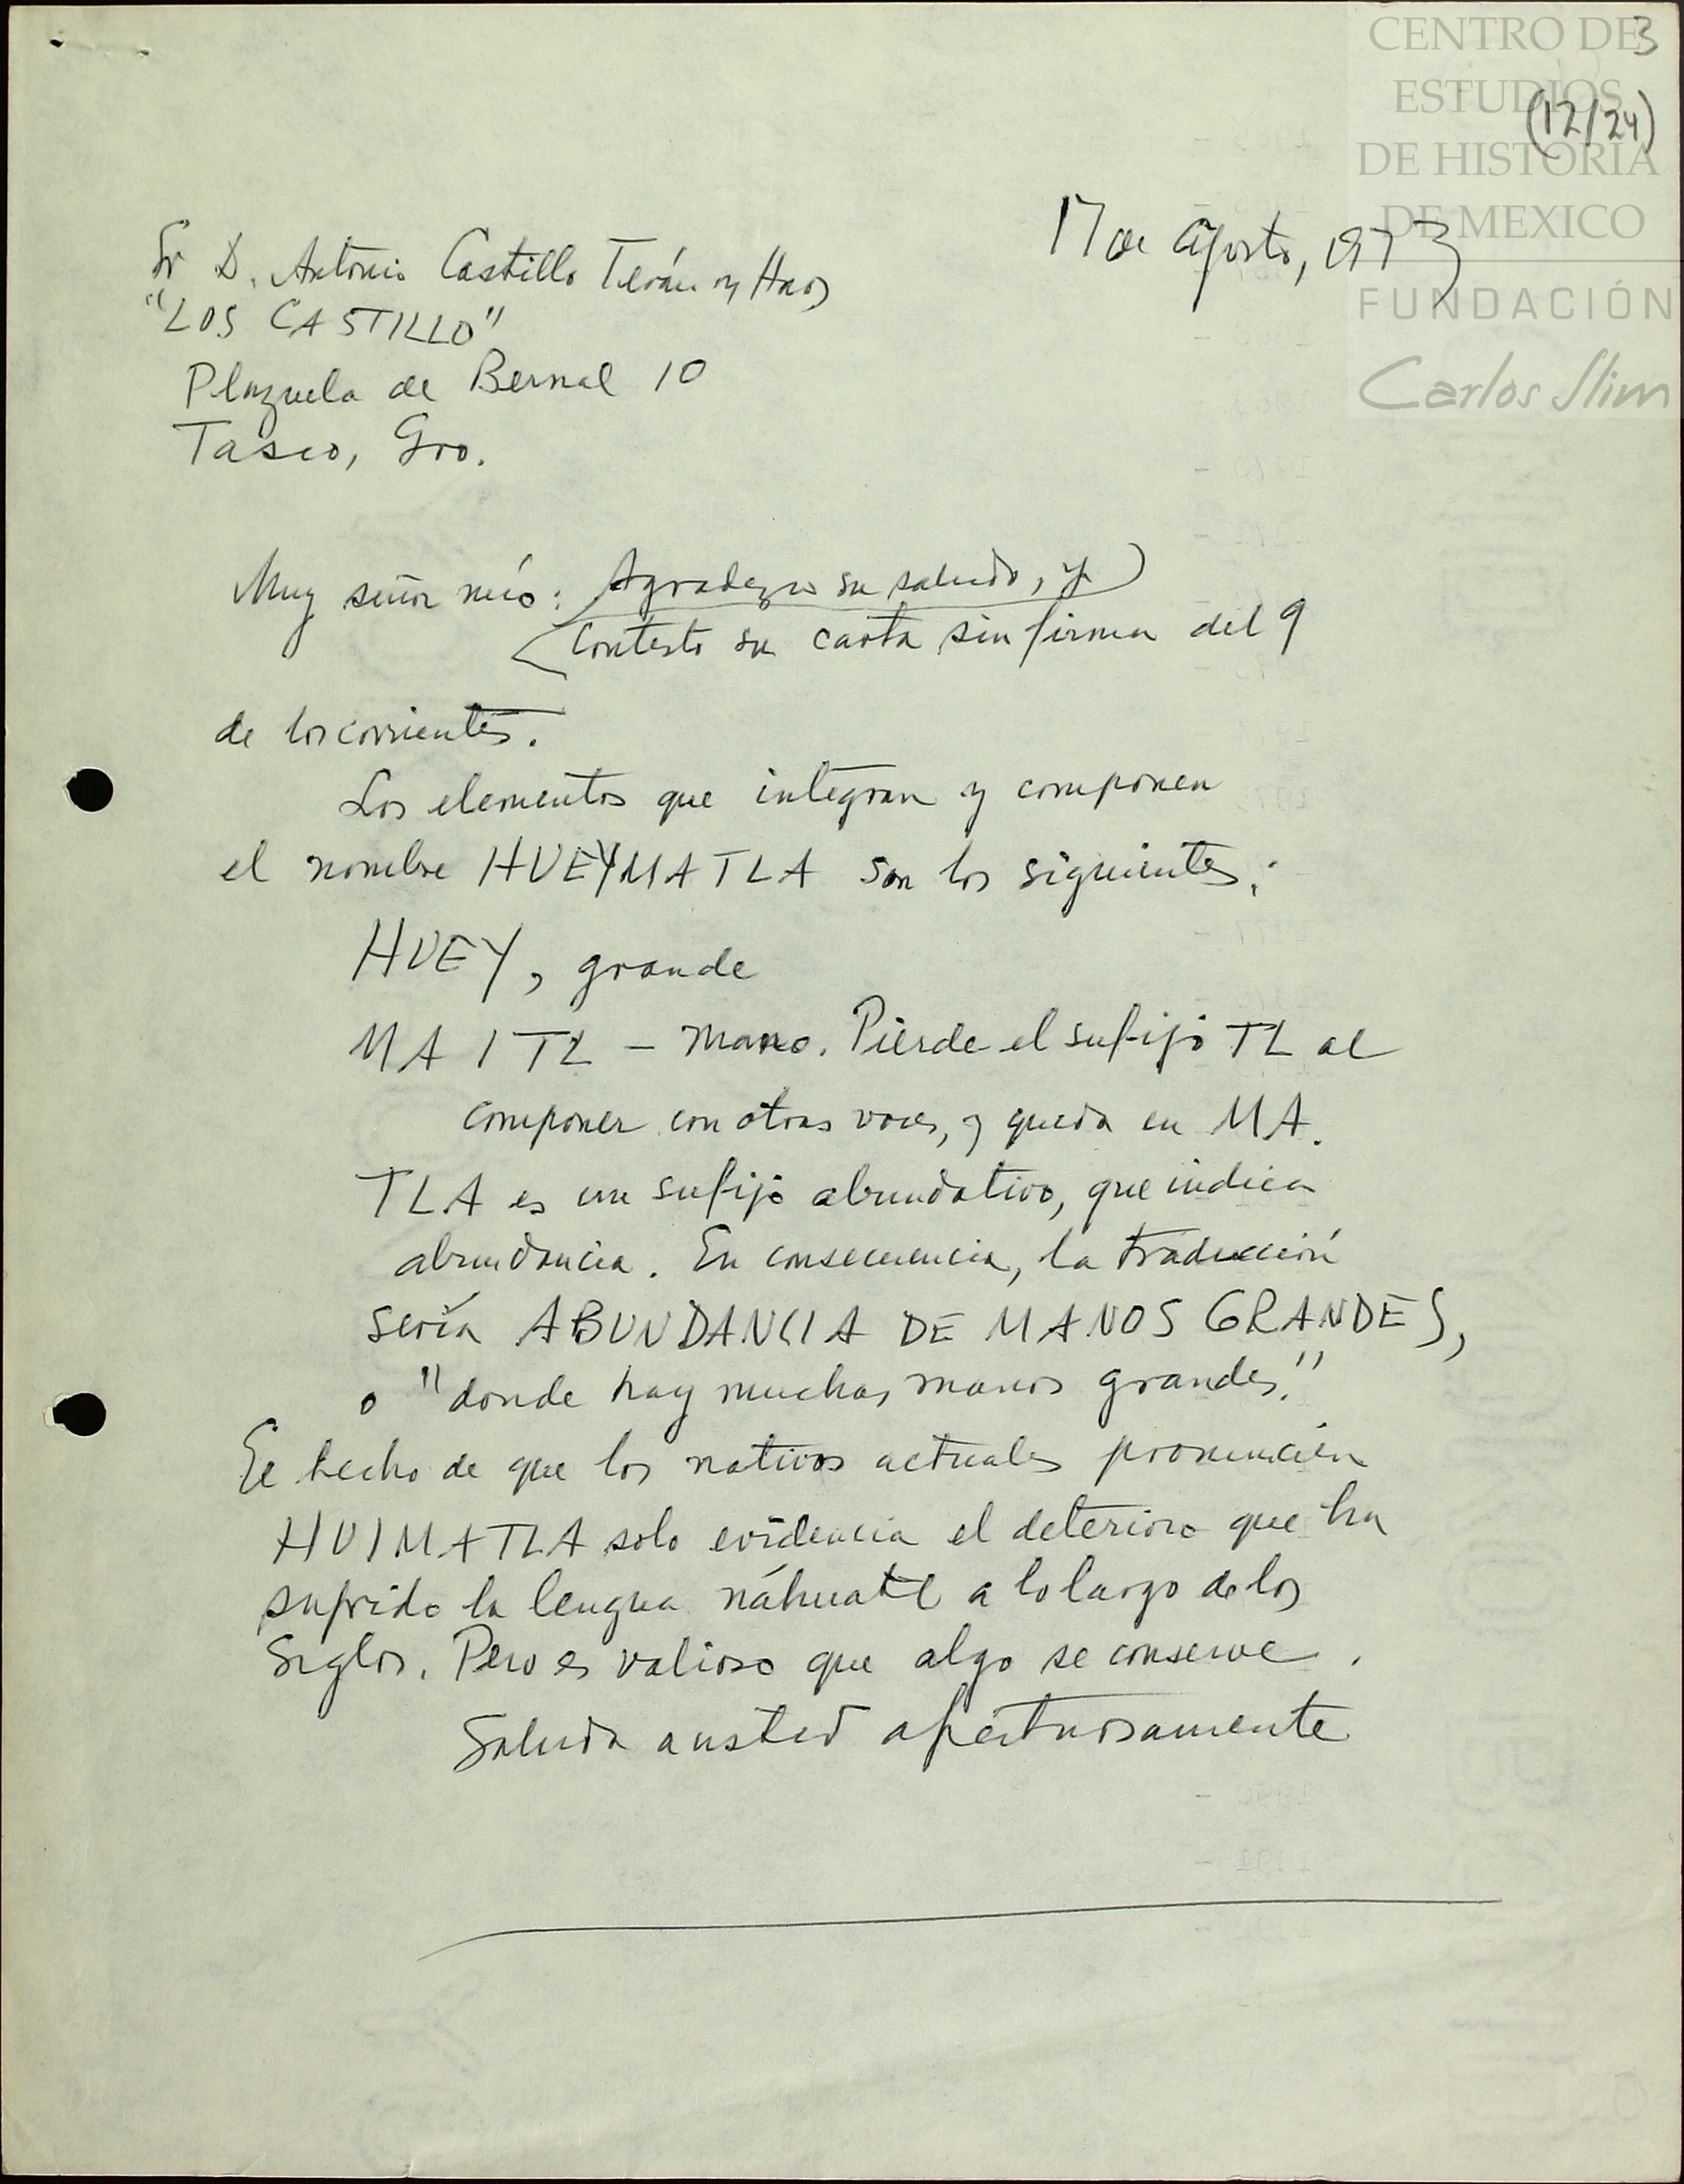 CENTRO DE
ESTUDIOS
DE HISTORIA
DE MEXICO
FUNDACIÓN
Carlos Slim
3
(12/24)
17 de agosto, 1973
Sr D. Antonio Castillo Terán y Hnos
"LOS CASTILLO"
Plazuela de Bernal 10
Tasco, Gro.
Muy señor mío: Agradezco su saludo, y
Contesto su carta sin firma del 9
de los corrientes.
Los elementos que integran y componen
el nombre HUEYMATLA son los siguientes:
HUEY, grande
MAITL - mano. Pierde el sufijo TL al
componer con otras voces, y queda en MA.
TLA es un sufijo abundativo, que indica
abundancia. En consecuencia, la traducción
sería ABUNDANCIA DE MANOS GRANDES,
o "donde hay muchas manos grandes."
El hecho de que los nativos actuales pronuncien
HUIMATLA solo evidencia el deterioro que ha
sufrido la lengua náhuatl a lo largo de los
siglos. Pero es valioso que algo se conserve.
Saluda a usted afectuosamente